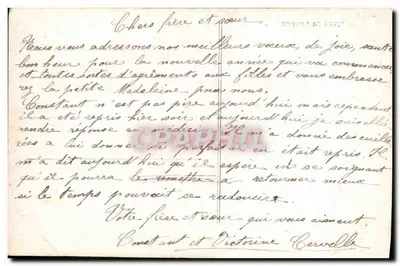 Chers frère et sœur
Nous vous adressons nos meilleurs vœux de joie, santé
bonheur pour la nouvelle année qui va commencer
et toutes sortes d'agréments aux filles et vous embrasse
rez la petite Madeleine pour nous.
Constant n'est pas pire aujourd'hui mais cependant
il a été repris hier soir et aujourd'hui je suis allé
rendre réponse au médecin Il m'a donné des cuille
rées a lui donner était repris Il
m'a dit aujourd'hui qu'il espère en se soignant
qu'il pourra le remettre a retourner mieux
si le temps pouvait se radoucir.
Votre frère et sœur qui vous aiment.
Constant et Victorine Cervelle